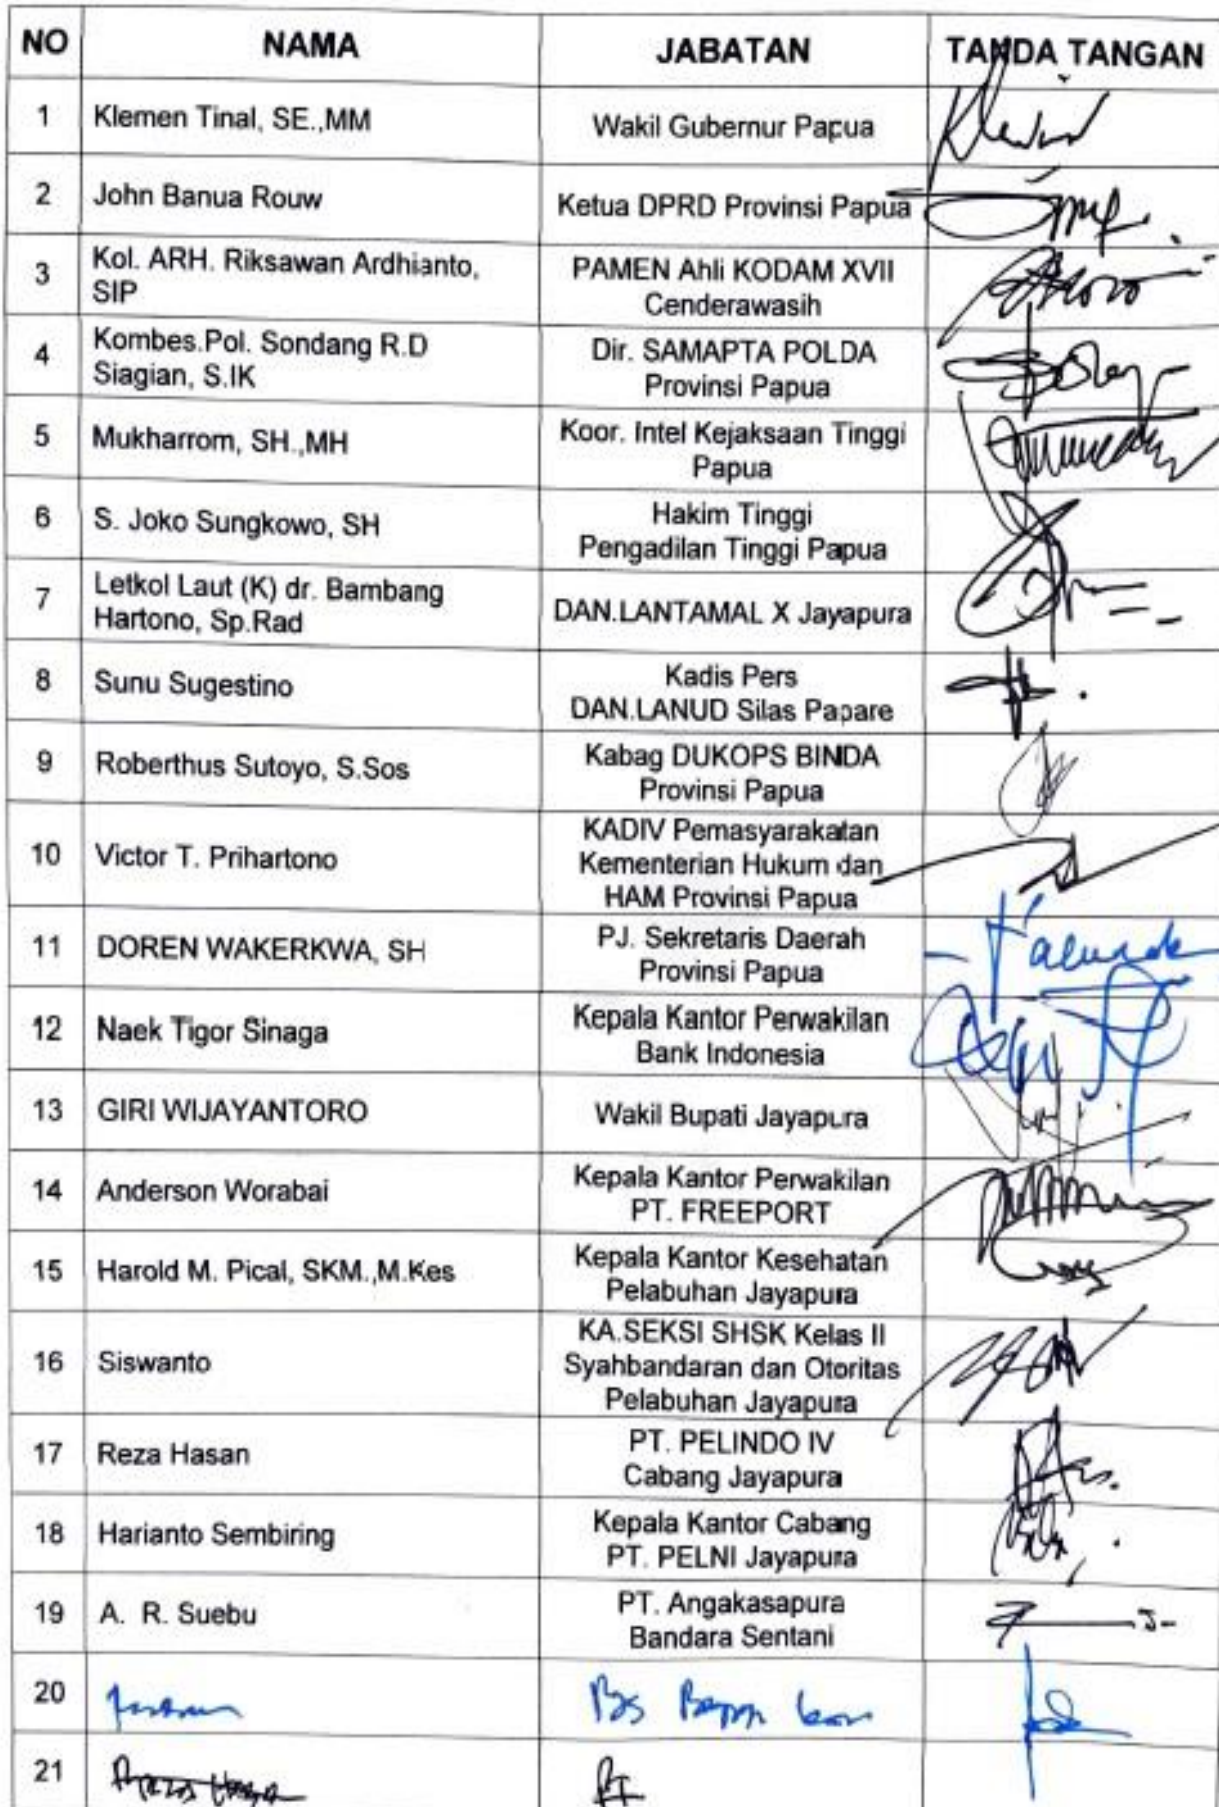 NO NAMA JABATAN TANDA TANGAN
1 Klemen Tinal, SE.,MM Wakil Gubernur Papua
2 John Banua Rouw Ketua DPRD Provinsi Papua
3 Kol. ARH. Riksawan Ardhianto, PAMEN Ahli KODAM XVII
SIP Cenderawasih
4 Kombes.Pol. Sondang R.D Dir. SAMAPTA POLDA
Siagian, S.IK Provinsi Papua
5 Mukharrom, SH.,MH Koor. Intel Kejaksaan Tinggi
Papua
6 S. Joko Sungkowo, SH Hakim Tinggi
Pengadilan Tinggi Papua
7 Letkol Laut (K) dr. Bambang
Hartono, Sp.Rad DAN.LANTAMAL X Jayapura
8 Sunu Sugestino Kadis Pers
DAN.LANUD Silas Papare
9 Roberthus Sutoyo, S.Sos Kabag DUKOPS BINDA
Provinsi Papua
10 Victor T. Prihartono KADIV Pemasyarakatan
Kementerian Hukum dan
HAM Provinsi Papua
11 DOREN WAKERKWA, SH PJ. Sekretaris Daerah
Provinsi Papua
12 Naek Tigor Sinaga Kepala Kantor Perwakilan
Bank Indonesia
13 GIRI WIJAYANTORO Wakil Bupati Jayapura
14 Anderson Worabai Kepala Kantor Perwakilan
PT. FREEPORT
15 Harold M. Pical, SKM.,M.Kes Kepala Kantor Kesehatan
Pelabuhan Jayapura
16 Siswanto KA.SEKSI SHSK Kelas II
Syahbandaran dan Otoritas
Pelabuhan Jayapura
17 Reza Hasan PT. PELINDO IV
Cabang Jayapura
18 Harianto Sembiring Kepala Kantor Cabang
PT. PELNI Jayapura
19 A. R. Suebu PT. Angakasapura
Bandara Sentani
20
21